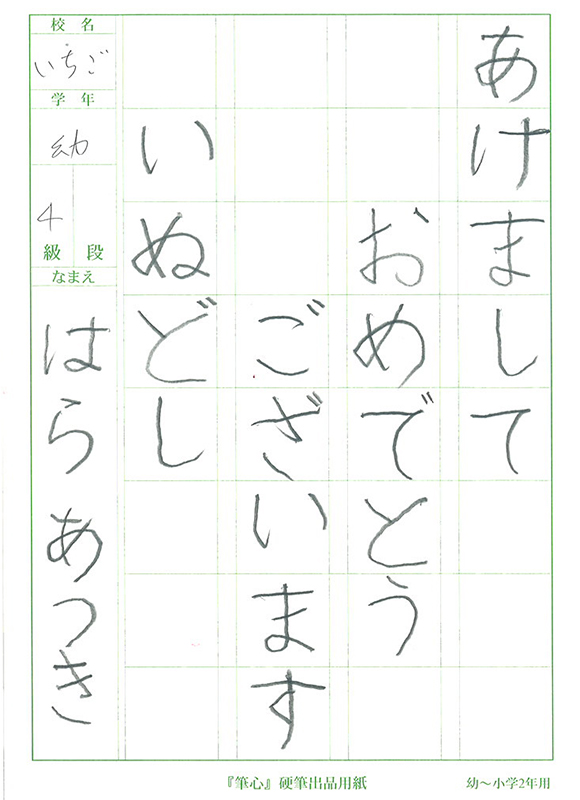 あけまして
おめでとう
ございます
いぬどし
校名
いちご
学年
幼
4
級段
なまえ
はらあつき
『筆心』硬筆出品用紙
幼〜小学2年用